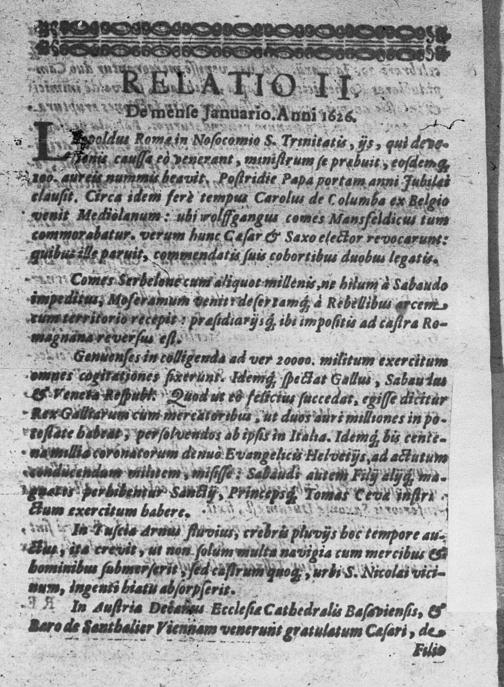 RELATIO II.
De mense Januario. Anni 1626.
Leopoldus Romæ in Nosocomio S. Trinitatis, ijs, qui devo-
tionis caussa eò venerant, ministrum se præbuit, eosdemq́
100. aureis nummis beavit. Postridie Papa portam anni Jubilæi
clausit. Circa idem ferè tempus Carolus de Columba ex Belgio
venit Mediolanum: ubi wolffgangus comes Mansfeldicus tum
commorabatur. verum hunc Cæsar & Saxo elector revocarunt:
quibus ille paruit, commendatis suis cohortibus duobus legatis.
Comes Serbelone cum aliquot millenis, ne hilum à Sabaudo
impeditus, Moseramum venit: desertamq́ à Rebellibus arcem
cum territorio recepit: præsidiarijsq́ ibi impositis ad castra Ro-
magnana reversus est.
Genuenses in colligenda ad ver 20000. militum exercitum
omnes cogitationes fixerunt. Idemq́ spectat Gallus, Sabaudus
& Veneta Respubl. Quod ut eò felicius succedat, egisse dicitur
Rex Galliarum cum mercatoribus, ut duos auri milliones in po-
testate habeat, persolvendos ab ipsis in Italia. Idemq́ bis cente-
na millia coronatorum denuò Evangelicis Helvetijs, ad actutum
conducendam militem, misisse: Sabaudi autem Filij alijq́ ma-
gnates perhibentur Sanctij, Princepsq́ Tomas Ceva instru-
ctum exercitum habere.
In Tuscia Arnus fluvius, crebris pluvijs hoc tempore au-
ctus, ita crevit, ut non solum multa navigia cum mercibus &
hominibus submerserit, sed castrum quoq́, urbi S. Nicolai vici-
num, ingenti hiatu absorpserit.
In Austria Decanus Ecclesiæ Cathedralis Basaviensis, &
Baro de Santhalier Viennam venerunt gratulatum Cæsari, de
Filio